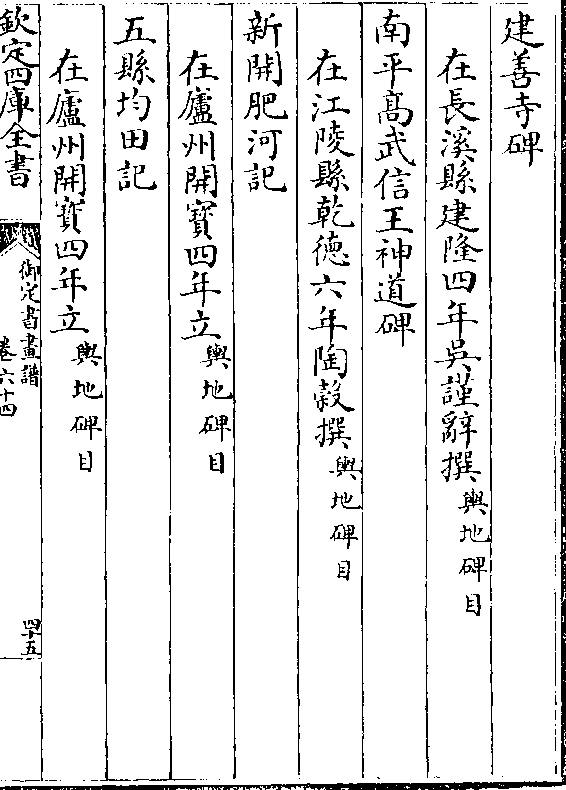 建善寺碑
在長溪縣建隆四年吳謹辭撰輿地碑目
南平髙武信王神道碑
在江陵縣乾德六年陶榖撰輿地碑目
新開肥河記
在廬州開寳四年立輿地碑目
五縣均田記
在廬州開寳四年立輿地碑目
欽定四庫全書
御定書畫譜
卷六十四
四十五